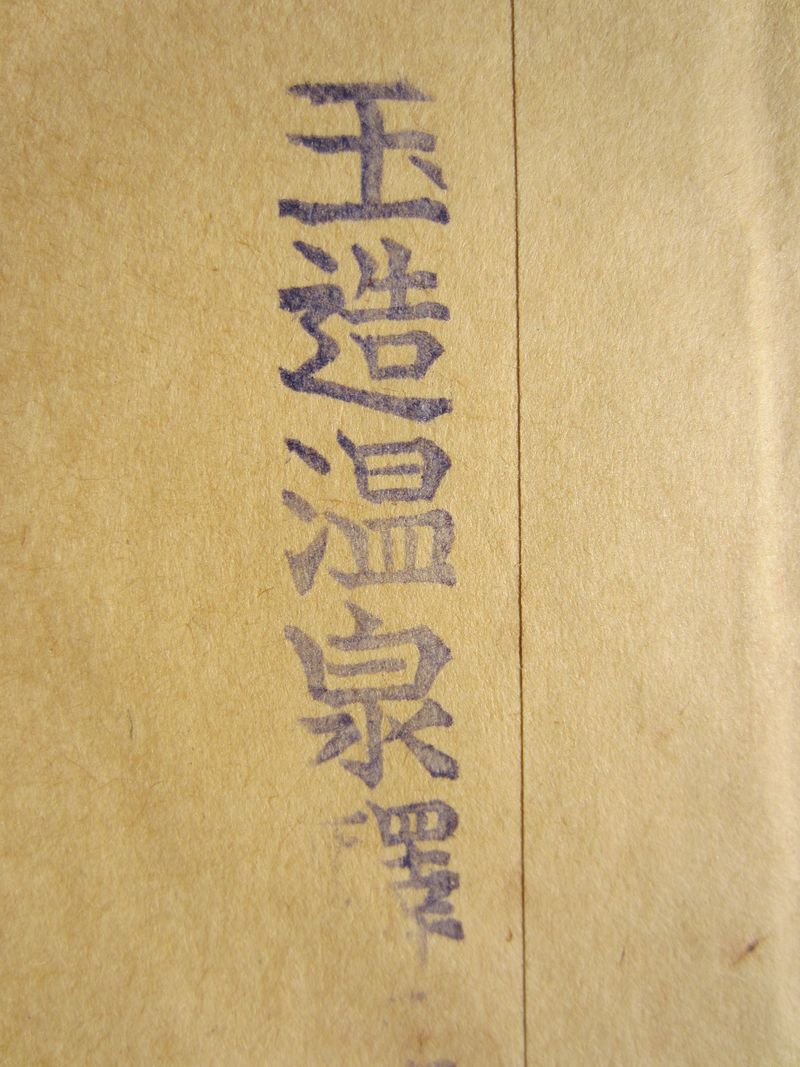 玉造温泉